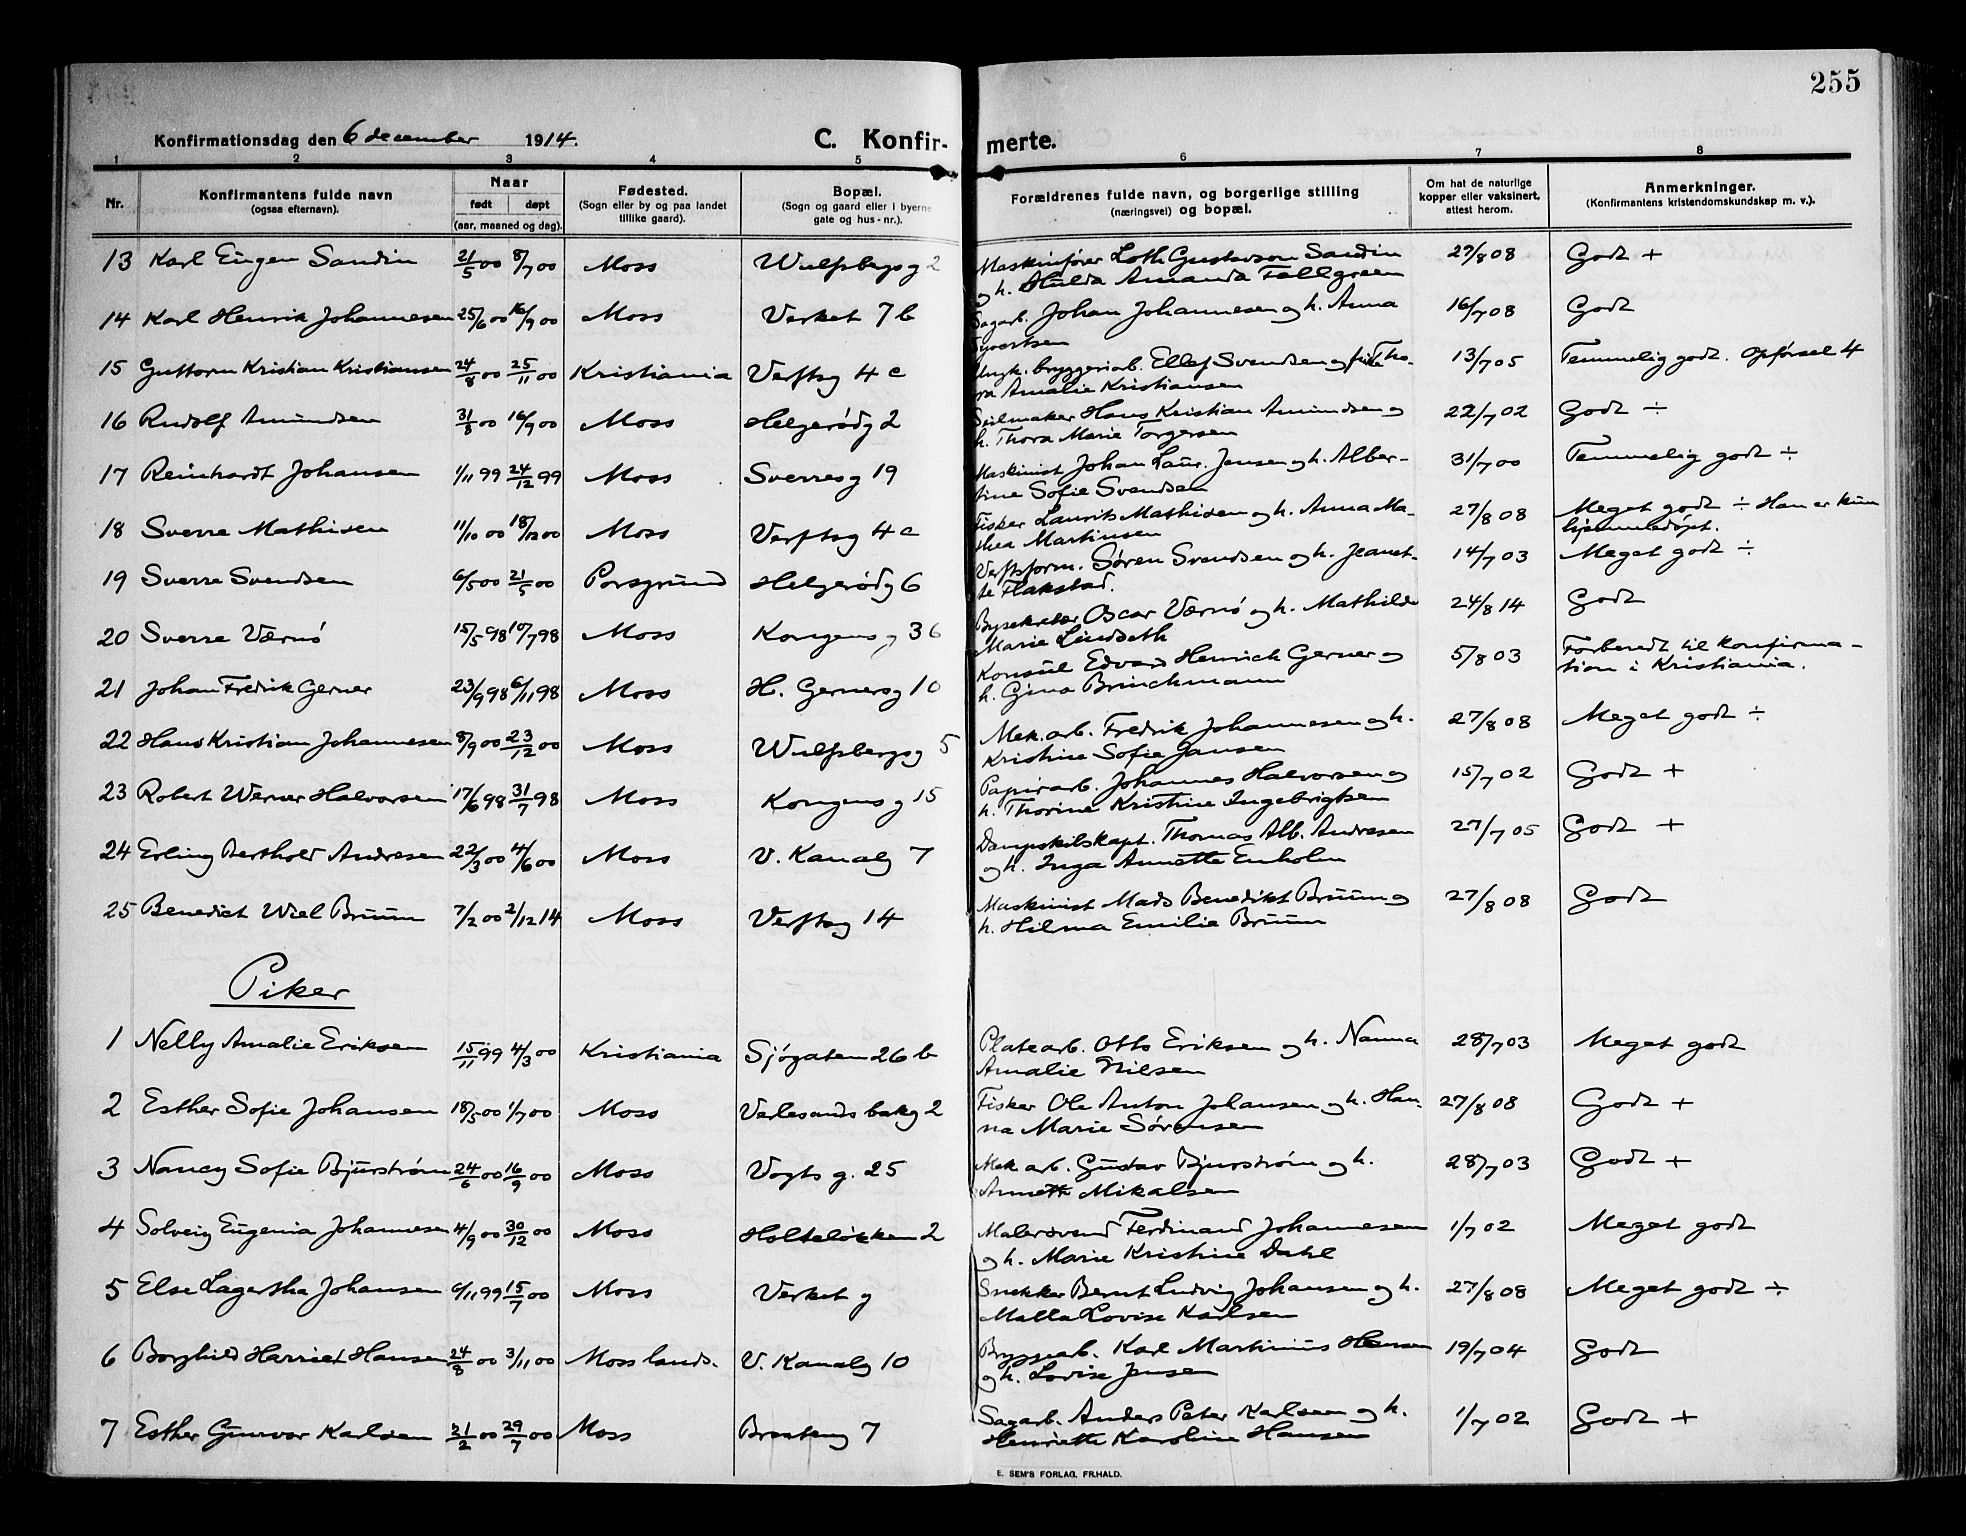 255
Konfirmationsdag den 6 december 1914. C. Konfirmerte.
1 2 3 4 5 6 7 8
Nr. Konfirmantens fulde navn (ogsaa efternavn). Naar født døpt (aar, maaned og dag). Fødested. (Sogn eller by og paa landet tillike gaard). Bopæl. (Sogn og gaard eller i byerne gate og hus-nr.). Forældrenes fulde navn, og borgerlige stilling (næringsvei) og bopæl. Om hat de naturlige kopper eller vaksinert, attest herom. Anmerkninger. (Konfirmantens kristendomskundskap m. v.).
13 Karl Eugen Sandin 21/5 00 8/7 00 Moss Wulfsbergsg 2 Maskinfører Loth Gustavson Sandin 27/8 08 Godt +
og h. Hulda Amanda Fallgreen
14 Karl Henrik Johannesen 25/6 00 16/9 00 Moss Verket 7 b Sagarb. Johan Johannesen og h. Anna 16/7 08 Godt
Syvertsen
15 Guttorm Kristian Kristiansen 24/8 00 25/11 00 Kristiania Verftsg 4 c Ungk. bryggeriarb. Ellef Svendsen og frk Tho- 13/7 05 Temmelig godt. Opførsel 4
ra Amalie Kristiansen
16 Rudolf Amundsen 31/8 00 16/9 00 Moss Helgerødg 2 Seilmaker Hans Kristian Amundsen og 22/7 02 Godt ÷
h. Thora Marie Torgersen
17 Reinhardt Johansen 1/11 99 24/12 99 Moss Sverresg 19 Maskinist Johan Laur. Jensen og h. Alber- 31/7 00 Temmelig godt ÷
tine Sofie Svendsen
18 Sverre Mathisen 11/10 00 18/12 00 Moss Verftsg 4 c Fisker Laurits Mathisen og h. Anna Ma- 27/8 08 Meget godt ÷ Han er kun
thea Martinsen hjemmedøpt.
19 Sverre Svendsen 6/5 00 21/5 00 Porsgrund Helgerødg 6 Verftsform. Søren Svendsen og h. Jeanet- 14/7 03 Meget godt ÷
te Flakstad.
20 Sverre Værnø 15/5 98 10/7 98 Moss Kongensg 36 Bysekretær Oscar Værnø og h. Mathilde 24/8 14 Godt
Marie Lindseth
21 Johan Fredrik Gerner 23/9 98 6/11 98 Moss H. Gernersg 10 Konsul Edvard Henrich Gerner og 5/8 03 Forberedt til konfirma-
h. Gina Brinchmann tion i Kristiania.
22 Hans Kristian Johannesen 8/9 00 23/12 00 Moss Wulfsbergsg 5 Mek. arb. Fredrik Johannesen og h. 27/8 08 Meget godt ÷
Kristine Sofie Jansen
23 Robert Werner Halvorsen 17/6 98 31/7 98 Moss Kongensg 15 Papirarb. Johannes Halvorsen og 15/7 02 Godt +
h. Thorine Kristine Ingebrigtsen
24 Erling Berthold Andresen 22/3 00 4/6 00 Moss V. Kanalg 7 Dampskibskapt. Thomas Alb. Andresen 27/7 05 Godt +
og h. Inga Annette Enholm
25 Benedict Wiel Bruun 7/2 00 2/12 14 Moss Verftsg 14 Maskinist Mads Benedikt Bruun og 27/8 08 Godt
h. Hilma Emilie Bruun
Piker
1 Nelly Amalie Eriksen 15/11 99 4/3 00 Kristiania Sjøgaten 26 b Platearb. Otto Eriksen og h. Nanna 28/7 03 Meget godt
Amalie Nielsen
2 Esther Sofie Johansen 18/5 00 1/7 00 Moss Værlesands bakg 2 Fisker Ole Anton Johansen og h. Han- 27/8 08 Godt +
na Marie Sørensen
3 Nancy Sofie Bjurstrøm 24/6 00 16/9 00 Moss Vogts g. 25 Mek arb. Gustav Bjurstrøm og h. 28/7 03 Godt +
Annette Mikalsen
4 Solveig Eugenia Johannesen 4/9 00 30/12 00 Moss Holteløkken 2 Malersvend Ferdinand Johannesen 1/7 02 Meget godt
og h. Marie Kristine Dahl
5 Else Lagertha Johansen 6/11 99 15/7 00 Moss Verket g Snekker Bernt Ludvig Johansen og h. 27/8 08 Meget godt ÷
Malla Lovise Karlsen
6 Borghild Harriet Hansen 24/8 00 3/11 00 Moss lands. V. Kanalg 10 Bryggearb. Karl Martinius Hansen 19/7 04 Godt
og h. Lovise Jensen
7 Esther Gunvor Karlsen 21/2 00 29/7 00 Moss Brateng 7 Sagarb. Anders Peter Karlsen og h. 1/7 02 Godt +
Henriette Karoline Hansen
E. SEM'S FORLAG, FR.HALD.